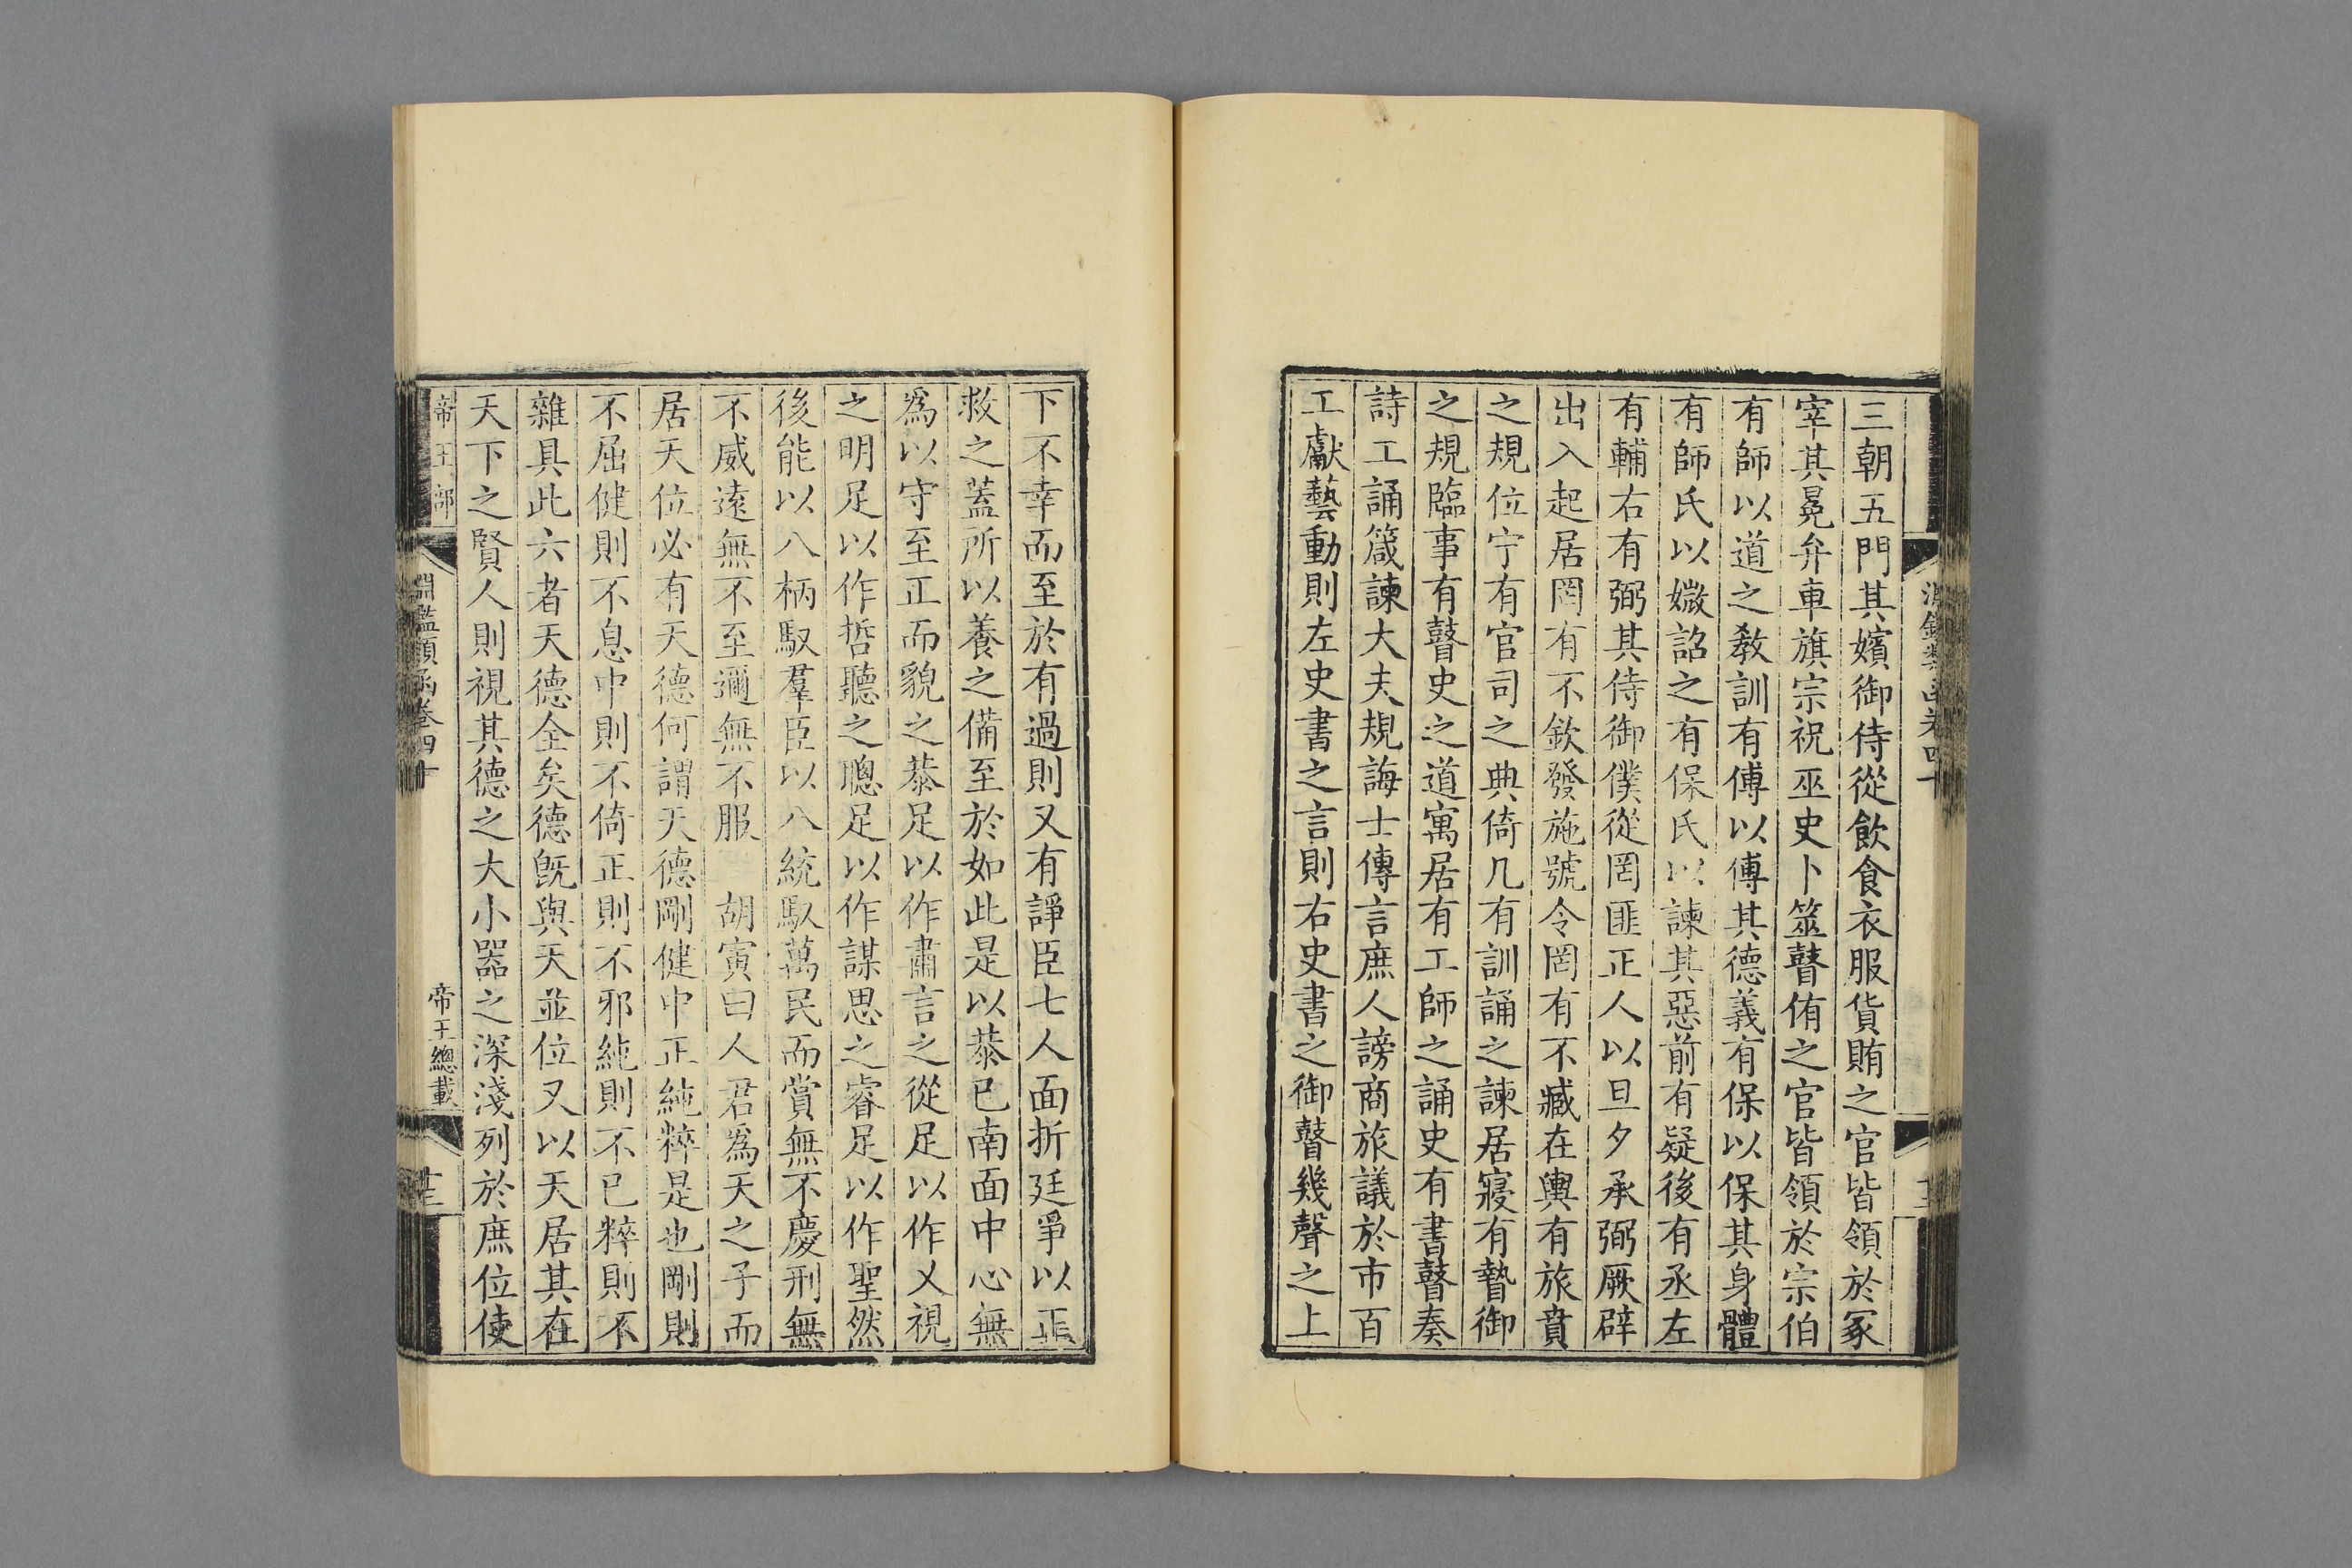 三朝五門其嬪御侍從飲食衣服貨賄之官皆領於冢
宰其冕弁車旗宗祝巫史卜筮瞽侑之官皆領於宗伯
有師以道之教訓有傅以傅其德義有保以保其身體
有師氏以媺詔之有保氏以諫其惡前有疑後有丞左
有輔右有弼其侍御僕從罔匪正人以旦夕承弼厥辟
出入起居罔有不欽發施號令罔有不臧在輿有旅賁
之規位宁有官司之典倚几有訓誦之諫居寢有暬御
之規臨事有瞽史之道寓居有工師之誦史有書瞽奏
詩工誦箴諫大夫規誨士傳言庶人謗商旅議於市百
工獻藝動則左史書之言則右史書之御瞽幾聲之上
下不幸而至於有過則又有諍臣七人面折廷爭以正
救之蓋所以養之備至於如此是以恭已南面中心無
爲以守至正而貌之恭足以作肅言之從足以作乂視
之明足以作哲聽之聰足以作謀思之睿足以作聖然
後能以八柄馭羣臣以八統馭萬民而賞無不慶刑無
不威遠無不至邇無不服 胡寅曰人君爲天之子而
居天位必有天德何謂天德剛健中正純粹是也剛則
不屈健則不息中則不倚正則不邪純則不已粹則不
雜具此六者天德全矣德旣與天並位又以天居其在
天下之賢人則視其德之大小器之深淺列於庶位使
帝王部
淵鑑類函卷四十
帝王總載